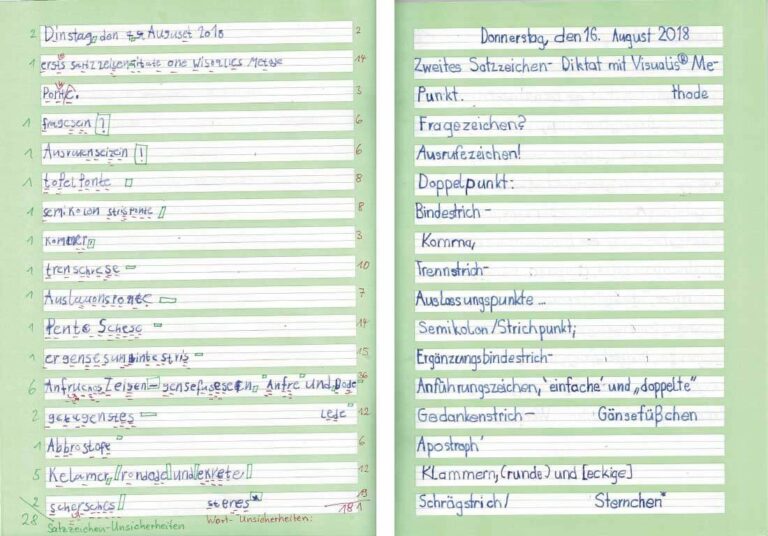 2 Dinstag, den Auguset 2018 2
1 ersts satzzeigensitate one Wisoalies Metode 14
Ponte. 3
1 fragesein ? 6
1 Ausrauenseizein ! 6
1 tofelponte 8
1 semikolon strisponte 8
1 kommer 3
1 trenschrese 10
1 Auslauonsponte 7
1 Pente Schese 14
1 ergensesunbintestris 15
6 Anfruches Zeigen - gensefuseseen "Anfre" und Dode 36
2 gekengenstes Lede 12
1 Abbrostofe 6
5 Kelamer, rondode und ekrete 12
2 schersches steres* 19
28 Satzzeichen-Unsicherheiten Wort-Unsicherheiten: 181
Donnerstag, den 16. August 2018
Zweites Satzzeichen- Diktat mit Visualis® Me-
Punkt. thode
Fragezeichen?
Ausrufezeichen!
Doppelpunkt:
Bindestrich -
Komma,
Trennstrich-
Auslassungspunkte ...
Semikolon/Strichpunkt;
Ergänzungsbindestrich-
Anführungszeichen, 'einfache' und „doppelte"
Gedankenstrich – Gänsefüßchen
Apostroph'
Klammern, (runde) und [eckige]
Schrägstrich/ Sternchen*